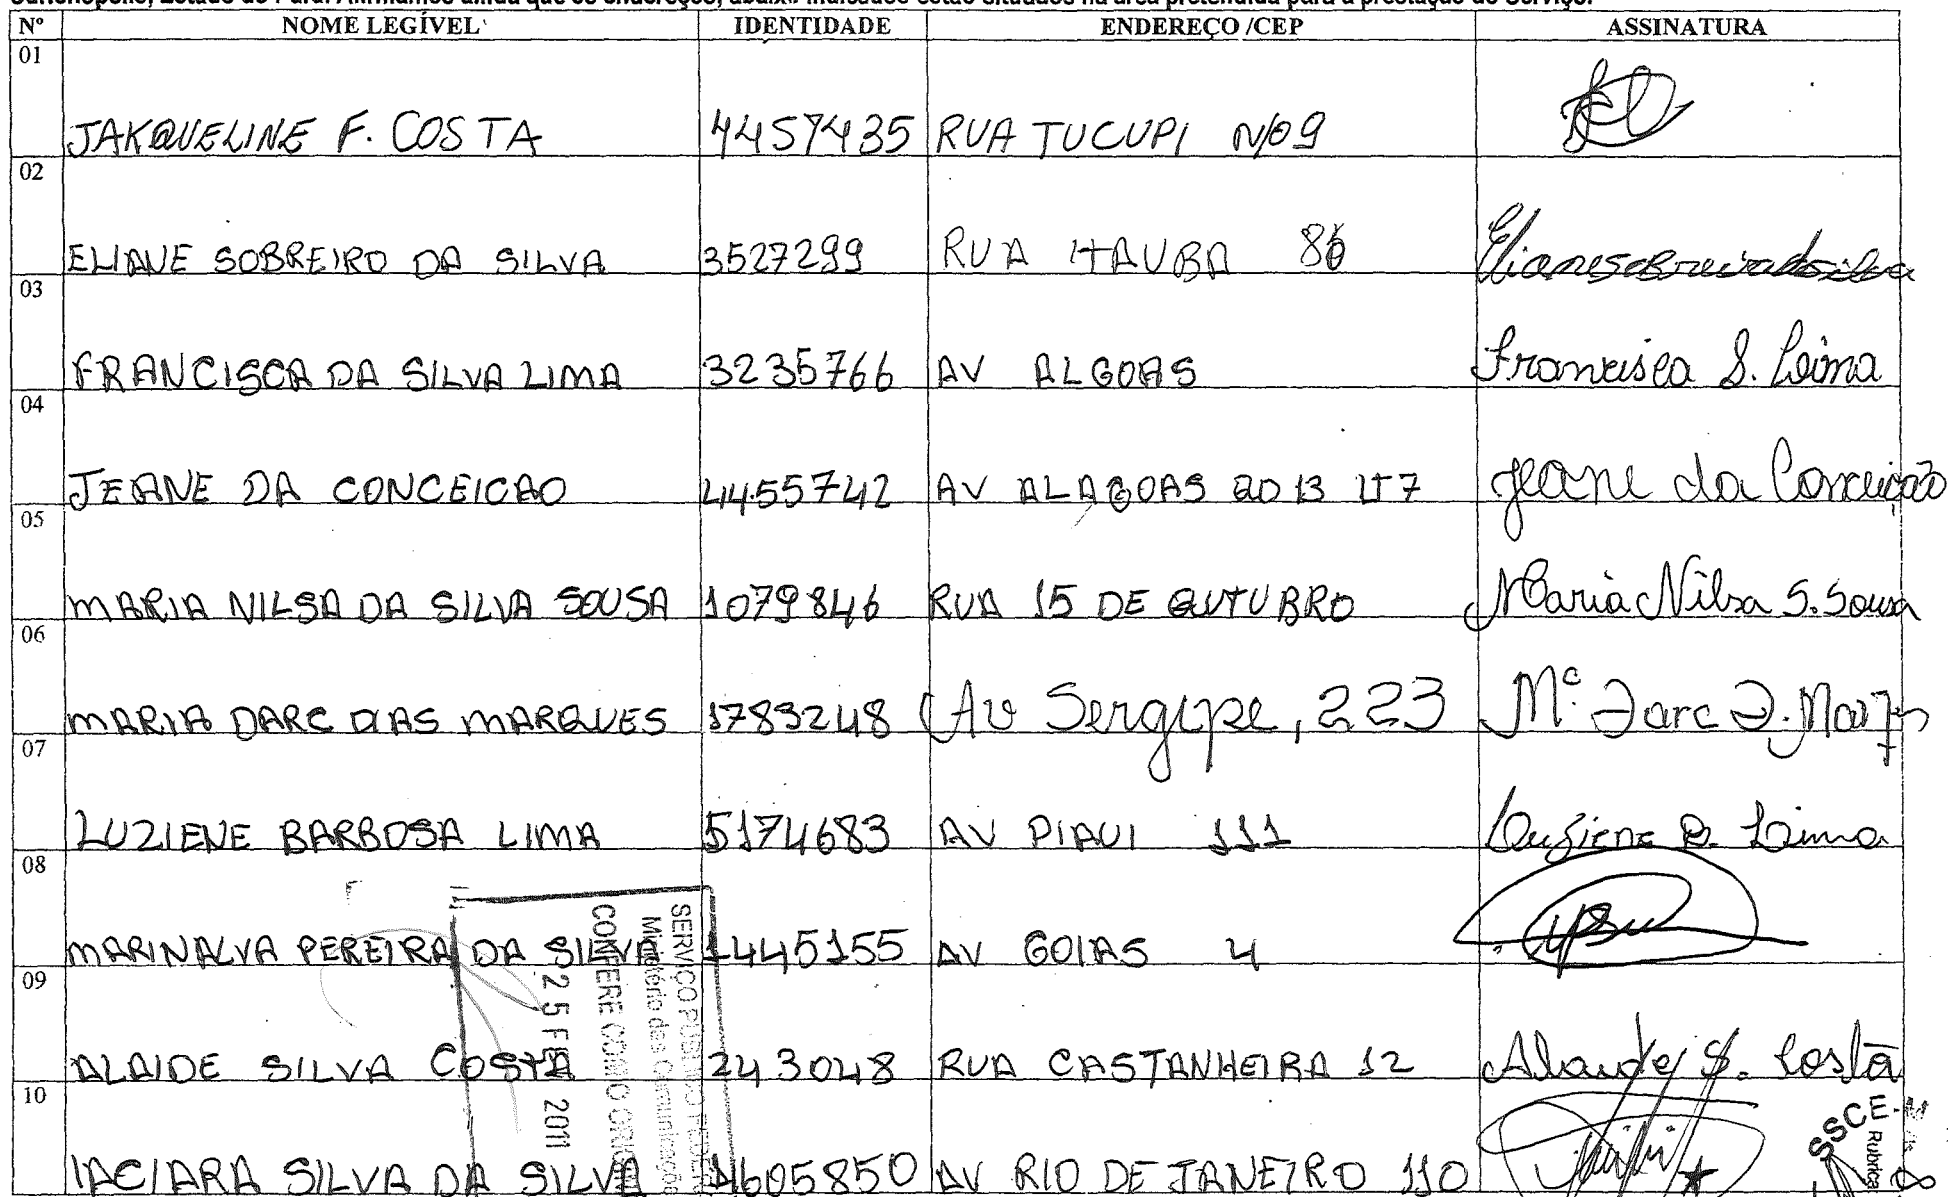 Nº NOME LEGÍVEL IDENTIDADE ENDEREÇO /CEP ASSINATURA
01 JAKQUELINE F. COSTA 4457435 RUA TUCUPI N/09
02 ELIANE SOBREIRO DA SILVA 3527299 RUA ITAUBA 86 Elianesobreirodasilva
03 FRANCISCA DA SILVA LIMA 3235766 AV ALGOAS Francisca S. Lima
04 JEANE DA CONCEICAO 4455742 AV ALAGOAS QD 13 LT 7 Jeane da Conceição
05 MARIA NILSA DA SILVA SOUSA 1079846 RUA 15 DE OUTUBRO Maria Nilsa S. Sousa
06 MARIA DARC DIAS MARQUES 1783248 Av Sergipe, 223 Mª Darc D.
07 LUZIENE BARBOSA LIMA 5174683 AV PIAUI 111 Luziene B. Lima
08 MARINALVA PEREIRA DA SILVA 1445155 AV GOIAS 4
09 ALAIDE SILVA COSTA 243048 RUA CASTANHEIRA 12 Alaide S. Costa
10 IACIARA SILVA DA SILVA 4605850 AV RIO DE JANEIRO 110
SERVIÇO PÚBLICO FEDERAL
Ministério das Comunicações
CONFERE COM O ORIGINAL
25 FEV 2011
SSCE
Rubrica